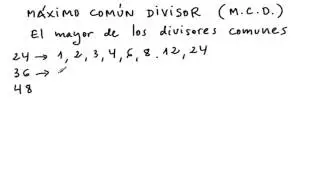 MÁXIMO COMÚN DIVISOR (M.C.D.)
El mayor de los divisores comunes
24 → 1, 2, 3, 4, 6, 8. 12, 24
36 →
48